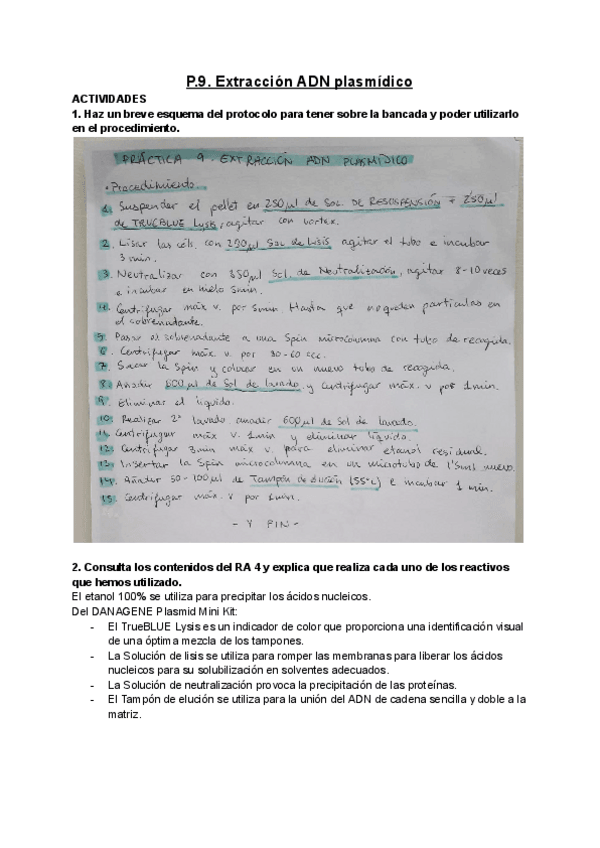 P.9. Extracción ADN plasmídico
ACTIVIDADES
1. Haz un breve esquema del protocolo para tener sobre la bancada y poder utilizarlo
en el procedimiento.
PRÁCTICA 9 - EXTRACCIÓN ADN PLASMÍDICO
• Procedimiento
1. Suspender el pellet en 250µl de SOL. DE RESUSPENSIÓN + 250µl
de TRUEBLUE Lysis, agitar con vortex.
2. Lisar las céls. con 250µl Sol de Lisis agitar el tubo e incubar
3 min.
3. Neutralizar con 350µl Sol. de Neutralización, agitar 8-10 veces
e incubar en hielo 5min.
4. Centrifugar máx v. por 5min. Hasta que no queden partículas en
el sobrenadante.
5. Pasar el sobrenadante a una Spin microcolumna con tubo de recogida.
6. Centrifugar máx v. por 30-60
7. Sacar la Spin y colocar en un nuevo tubo de recogida.
8. Añadir 600µl de Sol de lavado y centrifugar máx. v por 1min.
9. Eliminar el líquido.
10. Realizar 2º lavado añadir 600µl de Sol de lavado.
11. Centrifugar máx v. 1min y eliminar líquido.
12. Centrifugar 3min máx v. para eliminar etanol residual.
13. Insertar la Spin microcolumna en un microtubo de 1'5ml nuevo.
14. Añadir 50-100µl de Tampón de elución (55ºC) e incubar 1 min.
15. Centrifugar máx. v por 1min.
- Y FIN -
2. Consulta los contenidos del RA 4 y explica que realiza cada uno de los reactivos
que hemos utilizado.
El etanol 100% se utiliza para precipitar los ácidos nucleicos.
Del DANAGENE Plasmid Mini Kit:
- El TrueBLUE Lysis es un indicador de color que proporciona una identificación visual
de una óptima mezcla de los tampones.
- La Solución de lisis se utiliza para romper las membranas para liberar los ácidos
nucleicos para su solubilización en solventes adecuados.
- La Solución de neutralización provoca la precipitación de las proteínas.
- El Tampón de elución se utiliza para la unión del ADN de cadena sencilla y doble a la
matriz.